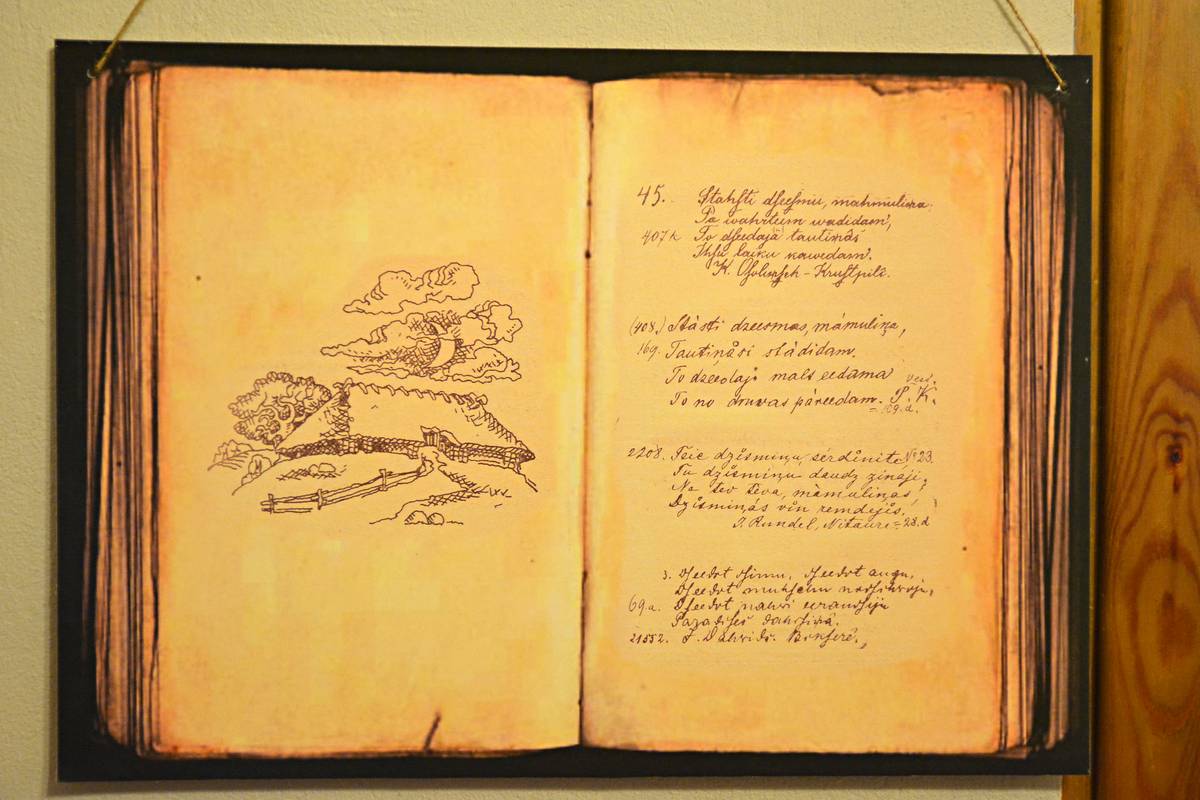 45. Stahsti dseesmu, mahmulina
Pa wahrteem wadidam',
407k To dseedajâ tautinâs
Ihsu laiku kawedam'.
K. Osolinsch - Krustpilê.
(408.) Stàsti dzeesmas, màmuliņa,
169. Tautinâsi stàdidam.
To dzeedaju malt eedama
To no druwas pàreedam. P. K.
= 109.d.
2208. Teic dzismiņu sérdinite, № 23.
Tu dzismiņu daudz zinaji;
Nɑ tev tèva, màmuliņas,
Dzismiņàs vin remdejìs.
J. Rundel, Nitaure = 28.d
3. Dseedot dsimu, dseedot augu,
Dseedot muhschu nodsihwoju,
69.a. Dseedot nahwi eeraudsiju
Paradises dahrsiņâ.
21552. J. Dahwids.